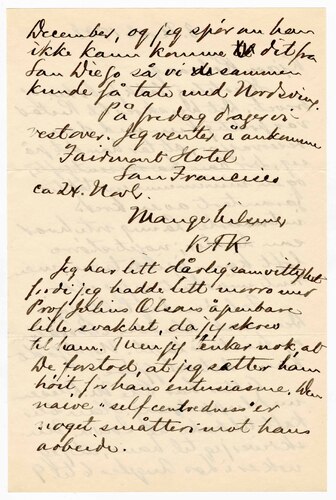 December, og jeg spör om han
ikke kann komme dit fra
San Diego så vi sammen
kunde få tate med Nordsving.
På fredag drager vi
vestover. Jeg venter å ankomme
Fairmont Hotel
San Francisco
ca 24. Novbr.
Mange hilsner
KAK
Jeg har litt dårlig samvittighet
fordi jeg hadde litt morro med
Prof Julius Olsons åpenbare
lille svakhet, da jeg skrev
til ham. Men jeg tenker nok, at
De forstod, at jeg sætter ham
höit for hans entusiasme. Den
naive "selfcentredness" er
noget småtteri mot hans
arbeide.